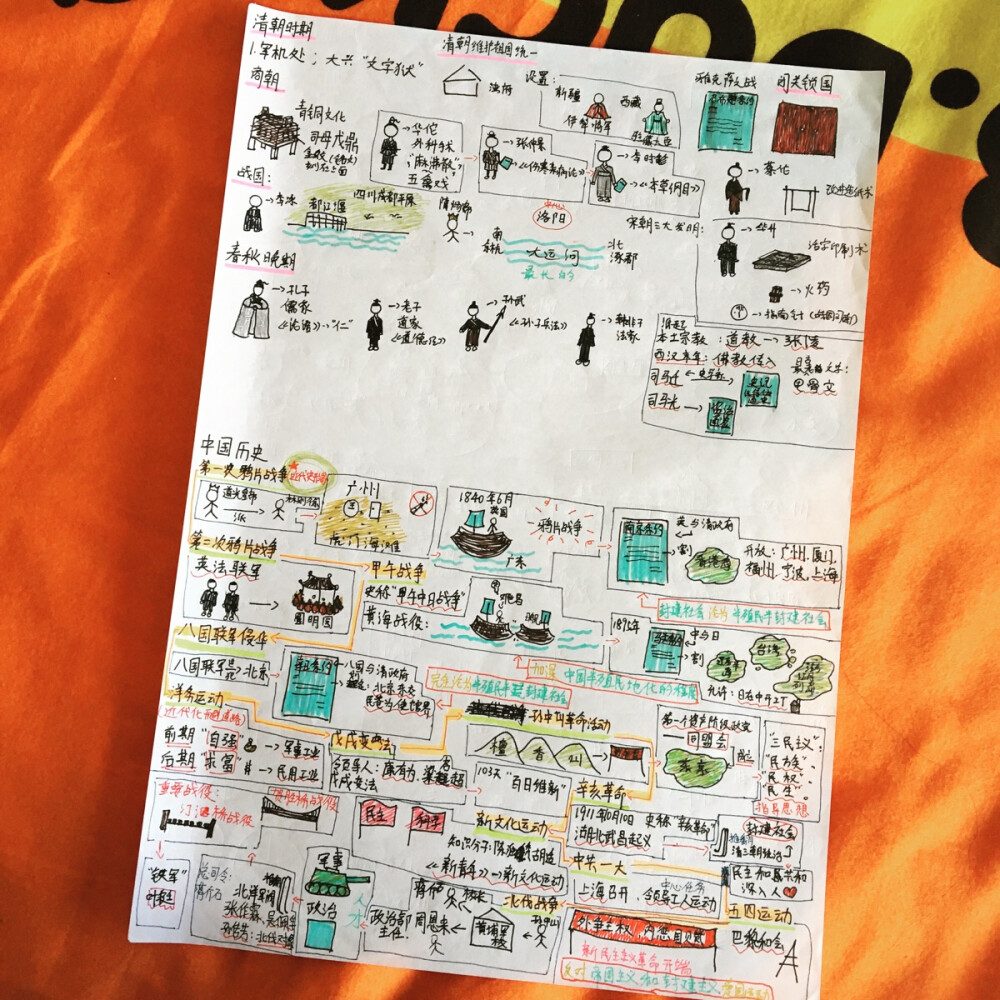 清朝时期
清朝维护祖国统一
1.军机处；大兴"文字狱"
设置：
新疆
伊犁将军
西藏
驻藏大臣
雅克萨之战
闭关锁国
商朝
青铜文化
司母戊鼎
→华佗
外科手术
"麻沸散"
五禽戏
→张仲景
《伤寒杂病论》
→李时珍
《本草纲目》
→蔡伦
改进造纸术
战国：
→李冰
都江堰
四川成都平原
隋炀帝
洛阳
大运河
最长的
北
涿郡
宋朝三大发明：
活字印刷术
→火药
春秋晚期
→孔子
儒家
《论语》"仁"
→老子
道家
《道德经》
→孙武
《孙子兵法》
韩非子
法家
本土宗教：道教→张陵
西汉末年：佛教传入
司马迁
史记
司马光
资治通鉴
甲骨文
中国历史
第一次鸦片战争
近代史开端
道光皇帝
派
林则徐
广州
虎门海滩
1840年6月
英国
广东
鸦片战争
南京条约
英与清政府
割
香港岛
开放：广州、厦门、
福州、宁波、上海
第二次鸦片战争
英法联军
圆明园
甲午战争
史称"甲午中日战争"
黄海战役：
1895年
马关条约
中与日
割
台湾
允许：日在中开工厂
封建社会 沦为 半殖民半封建社会
八国联军侵华
八国联军占北京
辛丑条约
八国与清政府
民居为使馆界
完全沦为半殖民半封建社会
加深 中国半殖民地化的程度
洋务运动
(近代化开端道路)
前期"自强"→军事工业
后期"求富"→民用工业
戊戌变法
领导人：康有为、梁启超
戊戌变法
103天"百日维新"
孙中山革命活动
檀香山
第一个资产阶级政党
同盟会
东京
成立
"三民主义"：
"民族"
"民权"
"民生"。
指导思想
辛亥革命
1911年10月10日
湖北武昌起义
史称"辛亥革命"
封建社会
推翻
清王朝统治
民主和共和
深入人心
重要战役：
汀泗桥战役
贺胜桥战役
"铁军"
叶挺
民主
科学
新文化运动
知识分子：陈独秀、胡适
《新青年》→新文化运动
中共一大
上海召开
中心任务
领导工人运动
五四运动
巴黎和会
外争主权，内惩国贼
新民主主义革命开端
反对 帝国主义和封建主义 爱国运动
北伐战争
孙中山
黄埔军校
校长
蒋介石
政治部
主任：
周恩来
军事
政治
人才
总司令：
蒋介石
推翻
北洋军阀
张作霖、吴佩孚
孙传芳：北伐对象